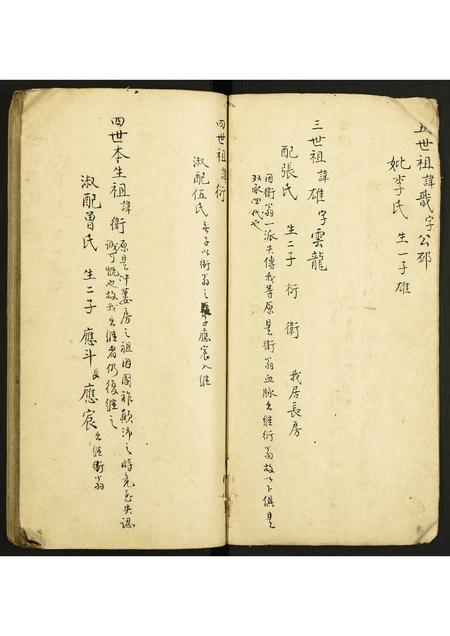 五世祖諱戢字公邳
妣李氏 生一子雄
三世祖諱雄字雲龍
配張氏 生二子 衍 衛 我居長房
因衛翁一派失傳我等原是衛翁血脉出繼衍翁故以下俱是
双承四代也
四世祖諱衍
淑配伍氏 無子以衛翁之子應宸入繼
四世本生祖諱衛 原是沖蔞房之祖因國祚顛沛之時竟已失認
誠可慨也故我出繼者仍復繼之
淑配曾氏 生二子 應斗 長 應宸 出繼衛翁